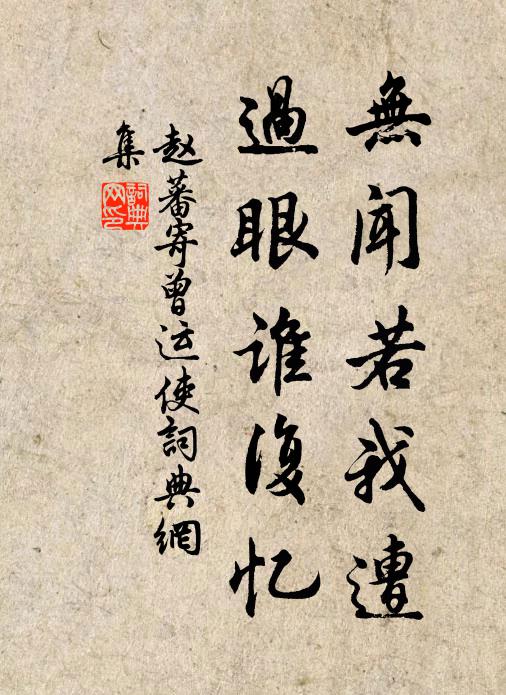 無聞若我遭
過眼誰復忆
赵蕃寄曾运使詞典網
集
詞典网印